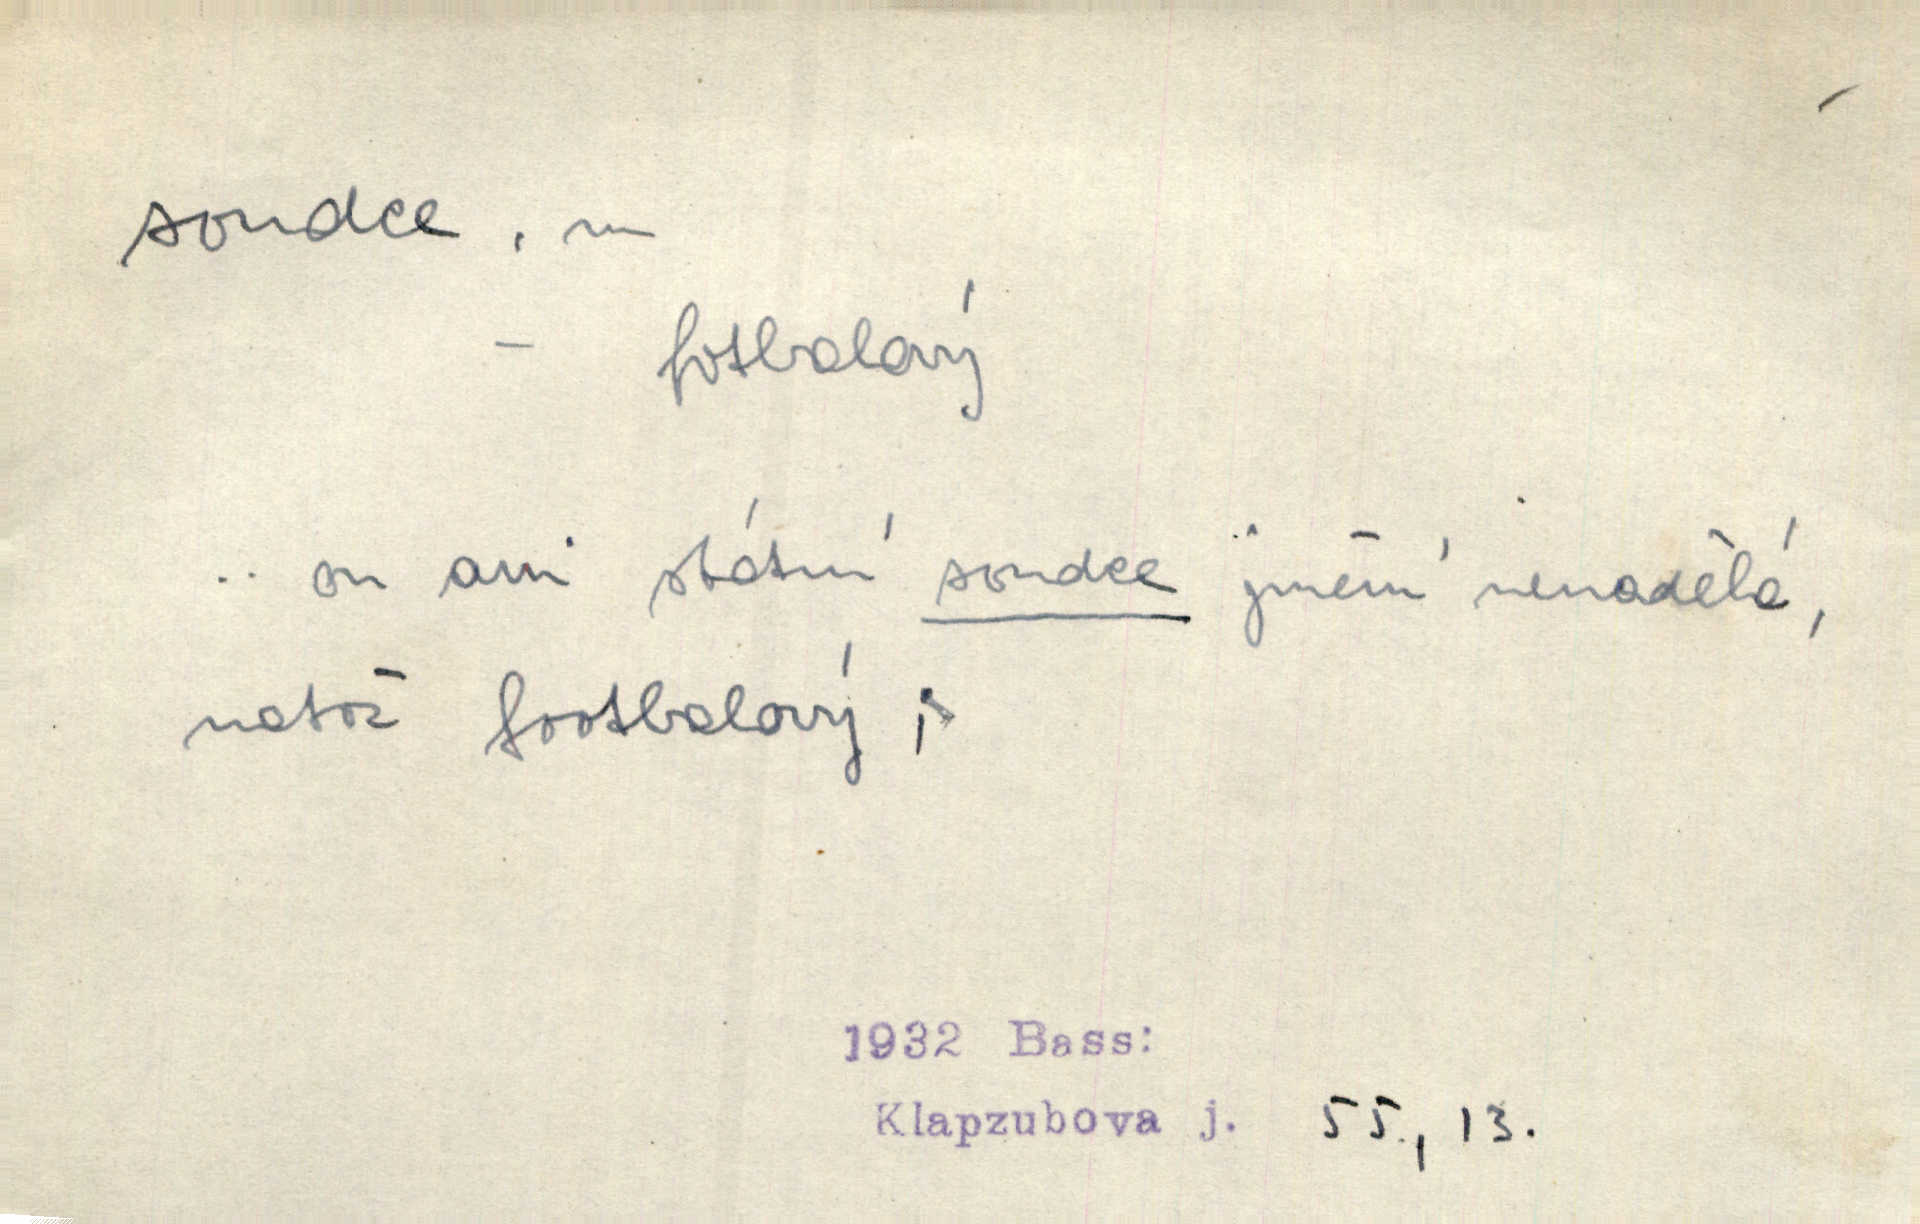 soudce, m
– fotbalový
.. on ani státní soudce jmění nenadělá,
natož footbalový;
1932 Bass:
Klapzubova j. 55., 13.